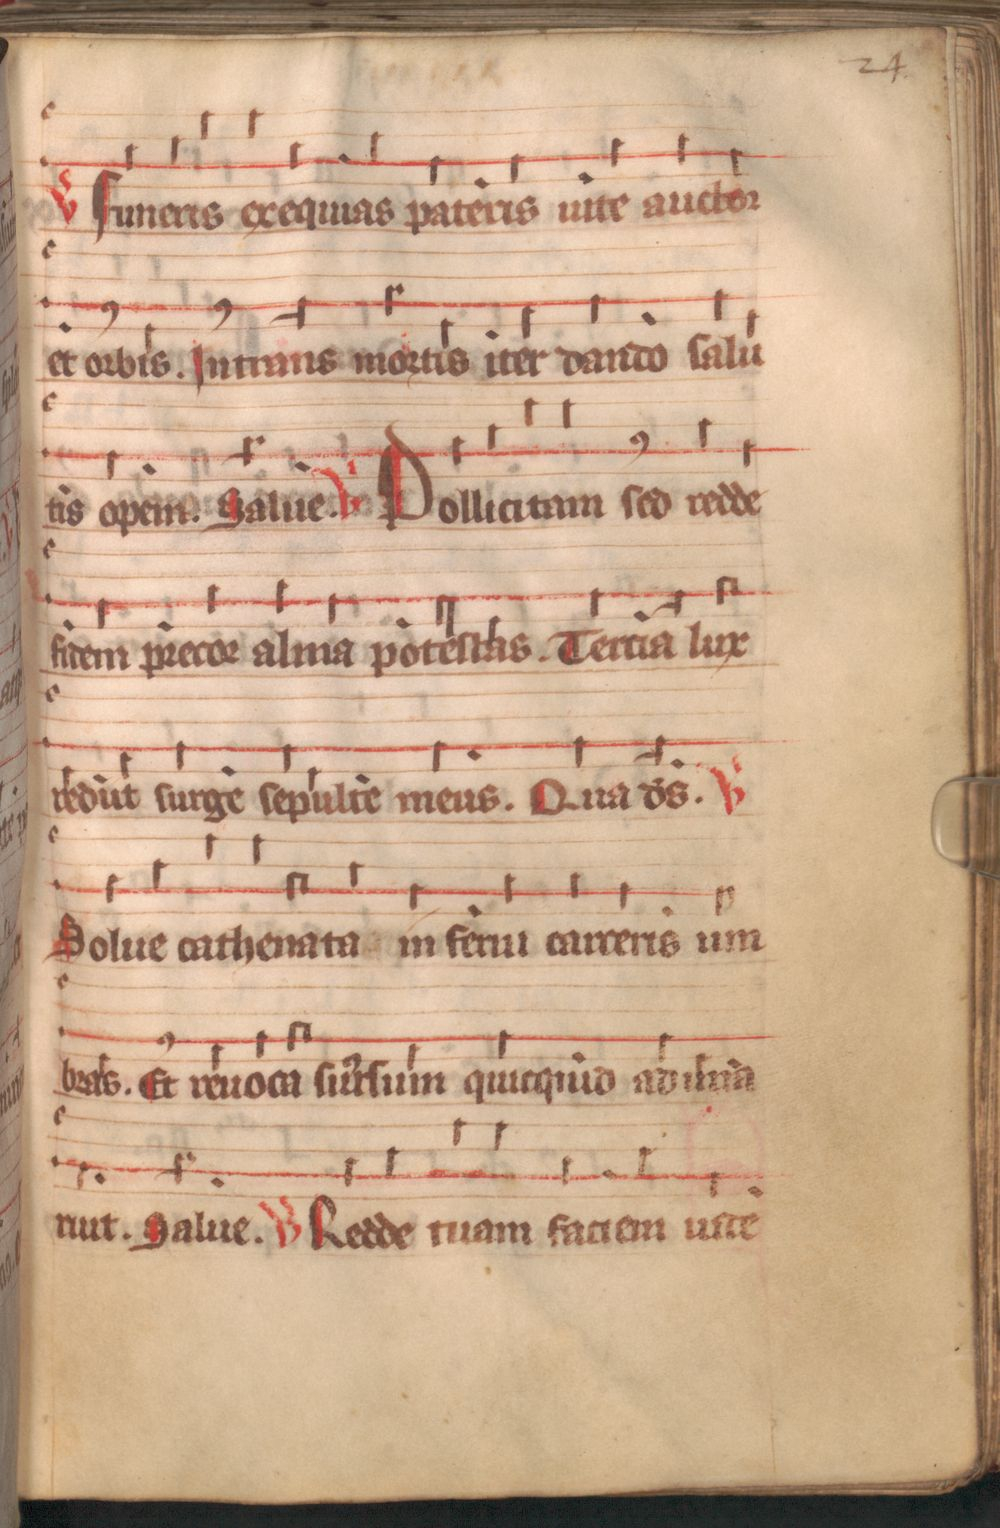 24
V Funeris exequias pateris uite auctor
et orbis. Intrans mortis iter dando salu
tis opem. Salue. V Pollicitam sed redde
fidem precor alma potestas. Tercia lux
redut surge sepulte meus. Qua ds. V
Solue cathenata inferni carceris um
bras. Et reuoca sursum quicquid ad
rut. Salue. V Redde tuam faciem uide